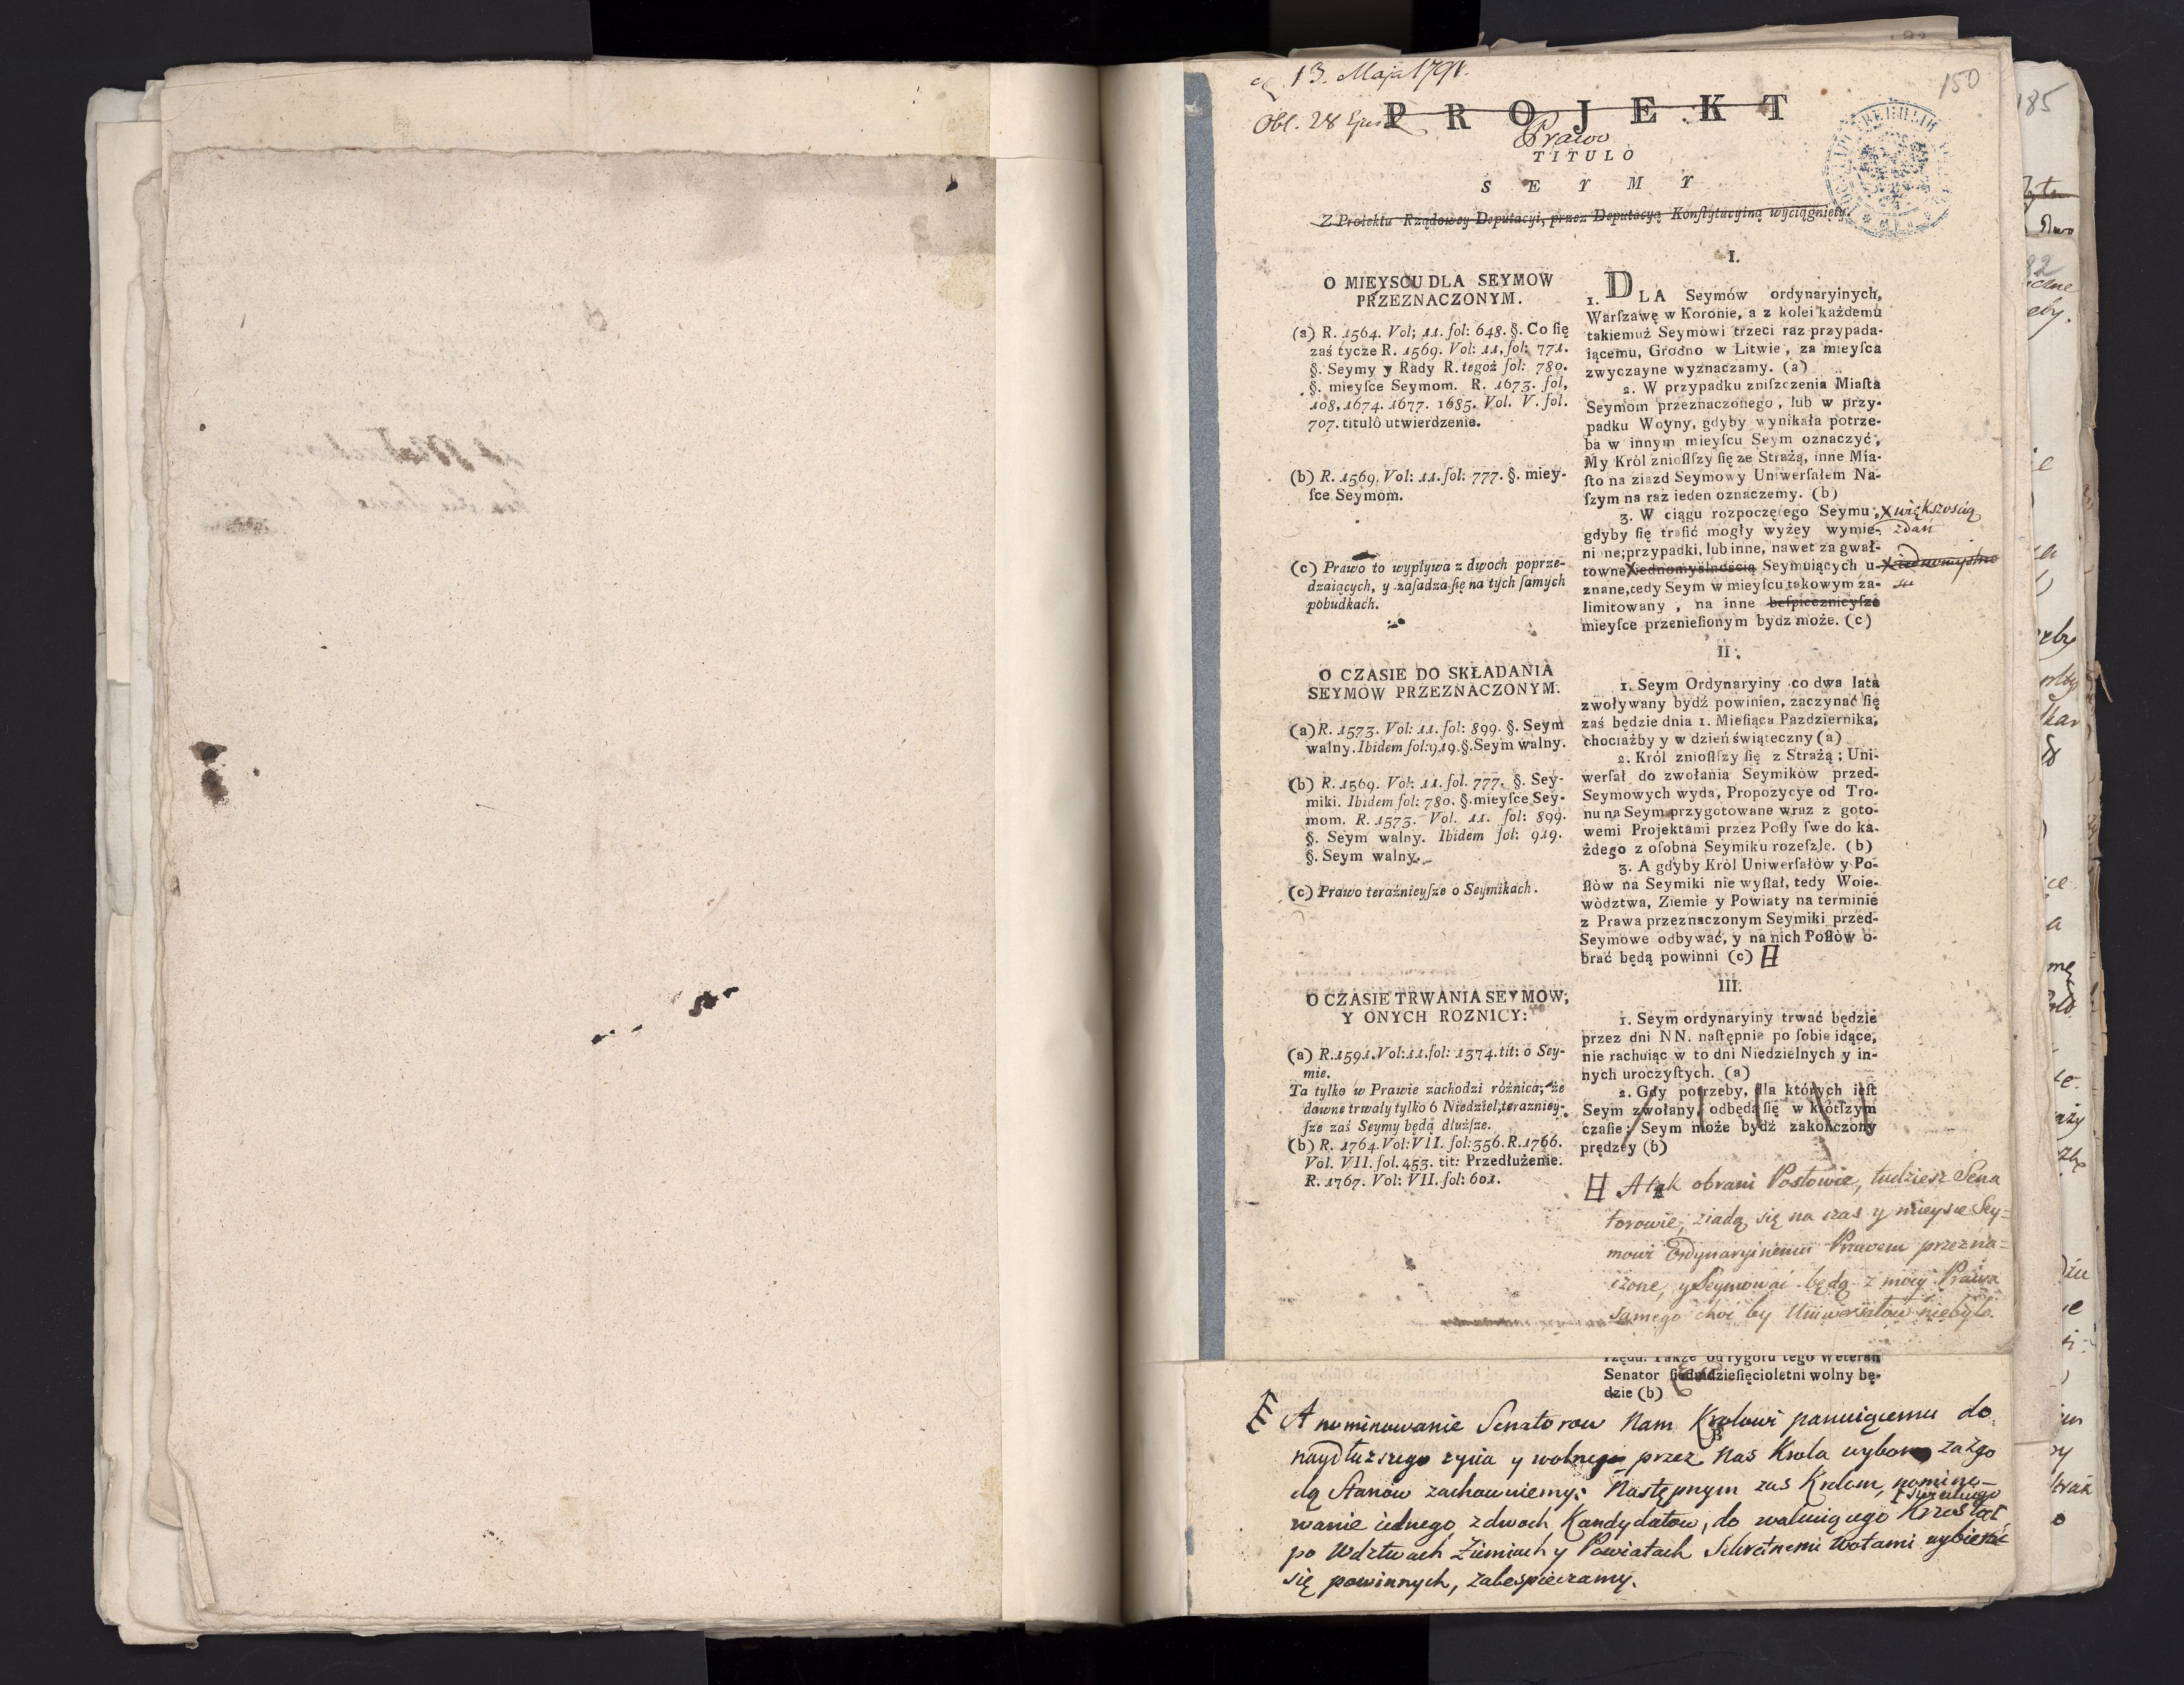 13. Maja 1791.
150
Obl. 28 Ejusd
PROJEKT
Prawo
TITULO
SEYMY
Z Proiektu Rządowey Deputacyi, przez Deputacyą Konſtytucyiną wyciągnięty
I.
O MIEYSCU DLA SEYMOW
PRZEZNACZONYM.
(a) R. 1564. Vol; 11. fol: 648. §. Co ſię
zaś tycze R. 1569. Vol: 11, fol: 771.
§. Seymy y Rady R. tegoż fol: 780.
§. mieyſce Seymom. R. 1673. fol,
108, 1674. 1677. 1685. Vol. V. fol.
707. titulô utwierdzenie.
(b) R. 1569. Vol: 11. fol: 777. §. miey-
ſce Seymom.
(c) Prawo to wypływa z dwoch poprze-
dzaiących, y zaſadza ſię na tych ſamych
pobudkach.
1. DLA Seymów ordynaryinych,
Warſzawę w Koronie, a z kolei każdemu
takiemuż Seymowi trzeci raz przypada-
iącemu, Grodno w Litwie, za mieyſca
zwyczayne wyznaczamy. (a)
2. W przypadku zniſzczenia Miaſta
Seymom przeznaczonego, lub w przy-
padku Woyny, gdyby wynikała potrze-
ba w innym mieyſcu Seym oznaczyć,
My Król znioſſzy ſię ze Strażą, inne Mia-
ſto na ziazd Seymowy Uniwerſałem Na-
ſzym na raz ieden oznaczemy. (b)
3. W ciągu rozpoczętego Seymu, X większością
gdyby ſię trafić mogły wyżey wymie- zdań
nione przypadki, lub inne, nawet za gwał-
towne X iednomyślnością Seymuiących u- X iednomyślno
znane, tedy Seym w mieyſcu takowym za-
limitowany, na inne beſpiecznieyſze
mieyſce przenieſionym bydz może. (c)
II.
O CZASIE DO SKŁADANIA
SEYMOW PRZEZNACZONYM.
(a) R. 1573. Vol: 11. fol: 899. §. Seym
walny. Ibidem fol: 919. §. Seym walny.
(b) R. 1569. Vol: 11. fol. 777. §. Sey-
miki. Ibidem fol: 780. §. mieyſce Sey-
mom. R. 1573. Vol. 11. fol: 899.
§. Seym walny. Ibidem fol: 919.
§. Seym walny.
(c) Prawo teraźnieyſze o Seymikach.
1. Seym Ordynaryiny co dwa lata
zwoływany bydź powinien, zaczynać ſię
zaś będzie dnia 1. Mieſiąca Pazdziernika,
chociażby y w dzień świąteczny (a)
2. Król znioſſzy ſię z Strażą; Uni-
werſał do zwołania Seymików przed-
Seymowych wyda, Propozycye od Tro-
nu na Seym przygotowane wraz z goto-
wemi Projektami przez Poſły ſwe do ka-
żdego z oſobna Seymiku rozeſzle. (b)
3. A gdyby Król Uniwerſałów y Po-
ſłów na Seymiki nie wyſłał, tedy Woie-
wództwa, Ziemie y Powiaty na terminie
z Prawa przeznaczonym Seymiki przed-
Seymowe odbywać, y na nich Poſłów o-
brać będą powinni (c) H
III.
O CZASIE TRWANIA SEYMOW,
Y ONYCH ROZNICY:
(a) R. 1591. Vol: 11. fol: 1374. tit: o Sey-
mie.
Ta tylko w Prawie zachodzi różnica, że
dawne trwały tylko 6 Niedziel, teraźniey-
ſze zaś Seymy będą dłużſze.
(b) R. 1764. Vol: VII. fol: 356. R. 1766.
Vol. VII. fol. 453. tit: Przedłużenie.
R. 1767. Vol: VII. fol: 601.
1. Seym ordynaryiny trwać będzie
przez dni NN. naſtępnie po ſobie idące,
nie rachuiąc w to dni Niedzielnych y in-
nych uroczyſtych. (a)
2. Gdy potrzeby, dla których ieſt
Seym zwołany, odbędą ſię w krótſzym
czaſie; Seym może bydź zakończony
prędzey (b)
H A tak obrani Posłowie, tudziesz Sena
torowie, ziadą się na czas y mieysce Sey=
mowi Ordynaryinemu Prawem przezna=
czone, y Seymować będą z mocy Prawa
samego choc by Uniwersałow niebyło.
rzędu. Także od rygoru tego Weteran
Senator ſiedmdzieſięcioletni wolny bę-
dzie (b)
A nominowanie Senatorow Nam Krolowi panuiącemu do
naydłuzszego zycia y wolnego przez Nas Krola wyboru za zgo
dą Stanow zachowuiemy: Następnym zas Krolom, nomino-
wanie iednego z dwoch Kandydatow, do walcuiącego Krzesła,
po Wdztwach Ziemiach y Powiatach Sekretnemi Wotami wybierać
się powinnych, zabespieczamy.
185